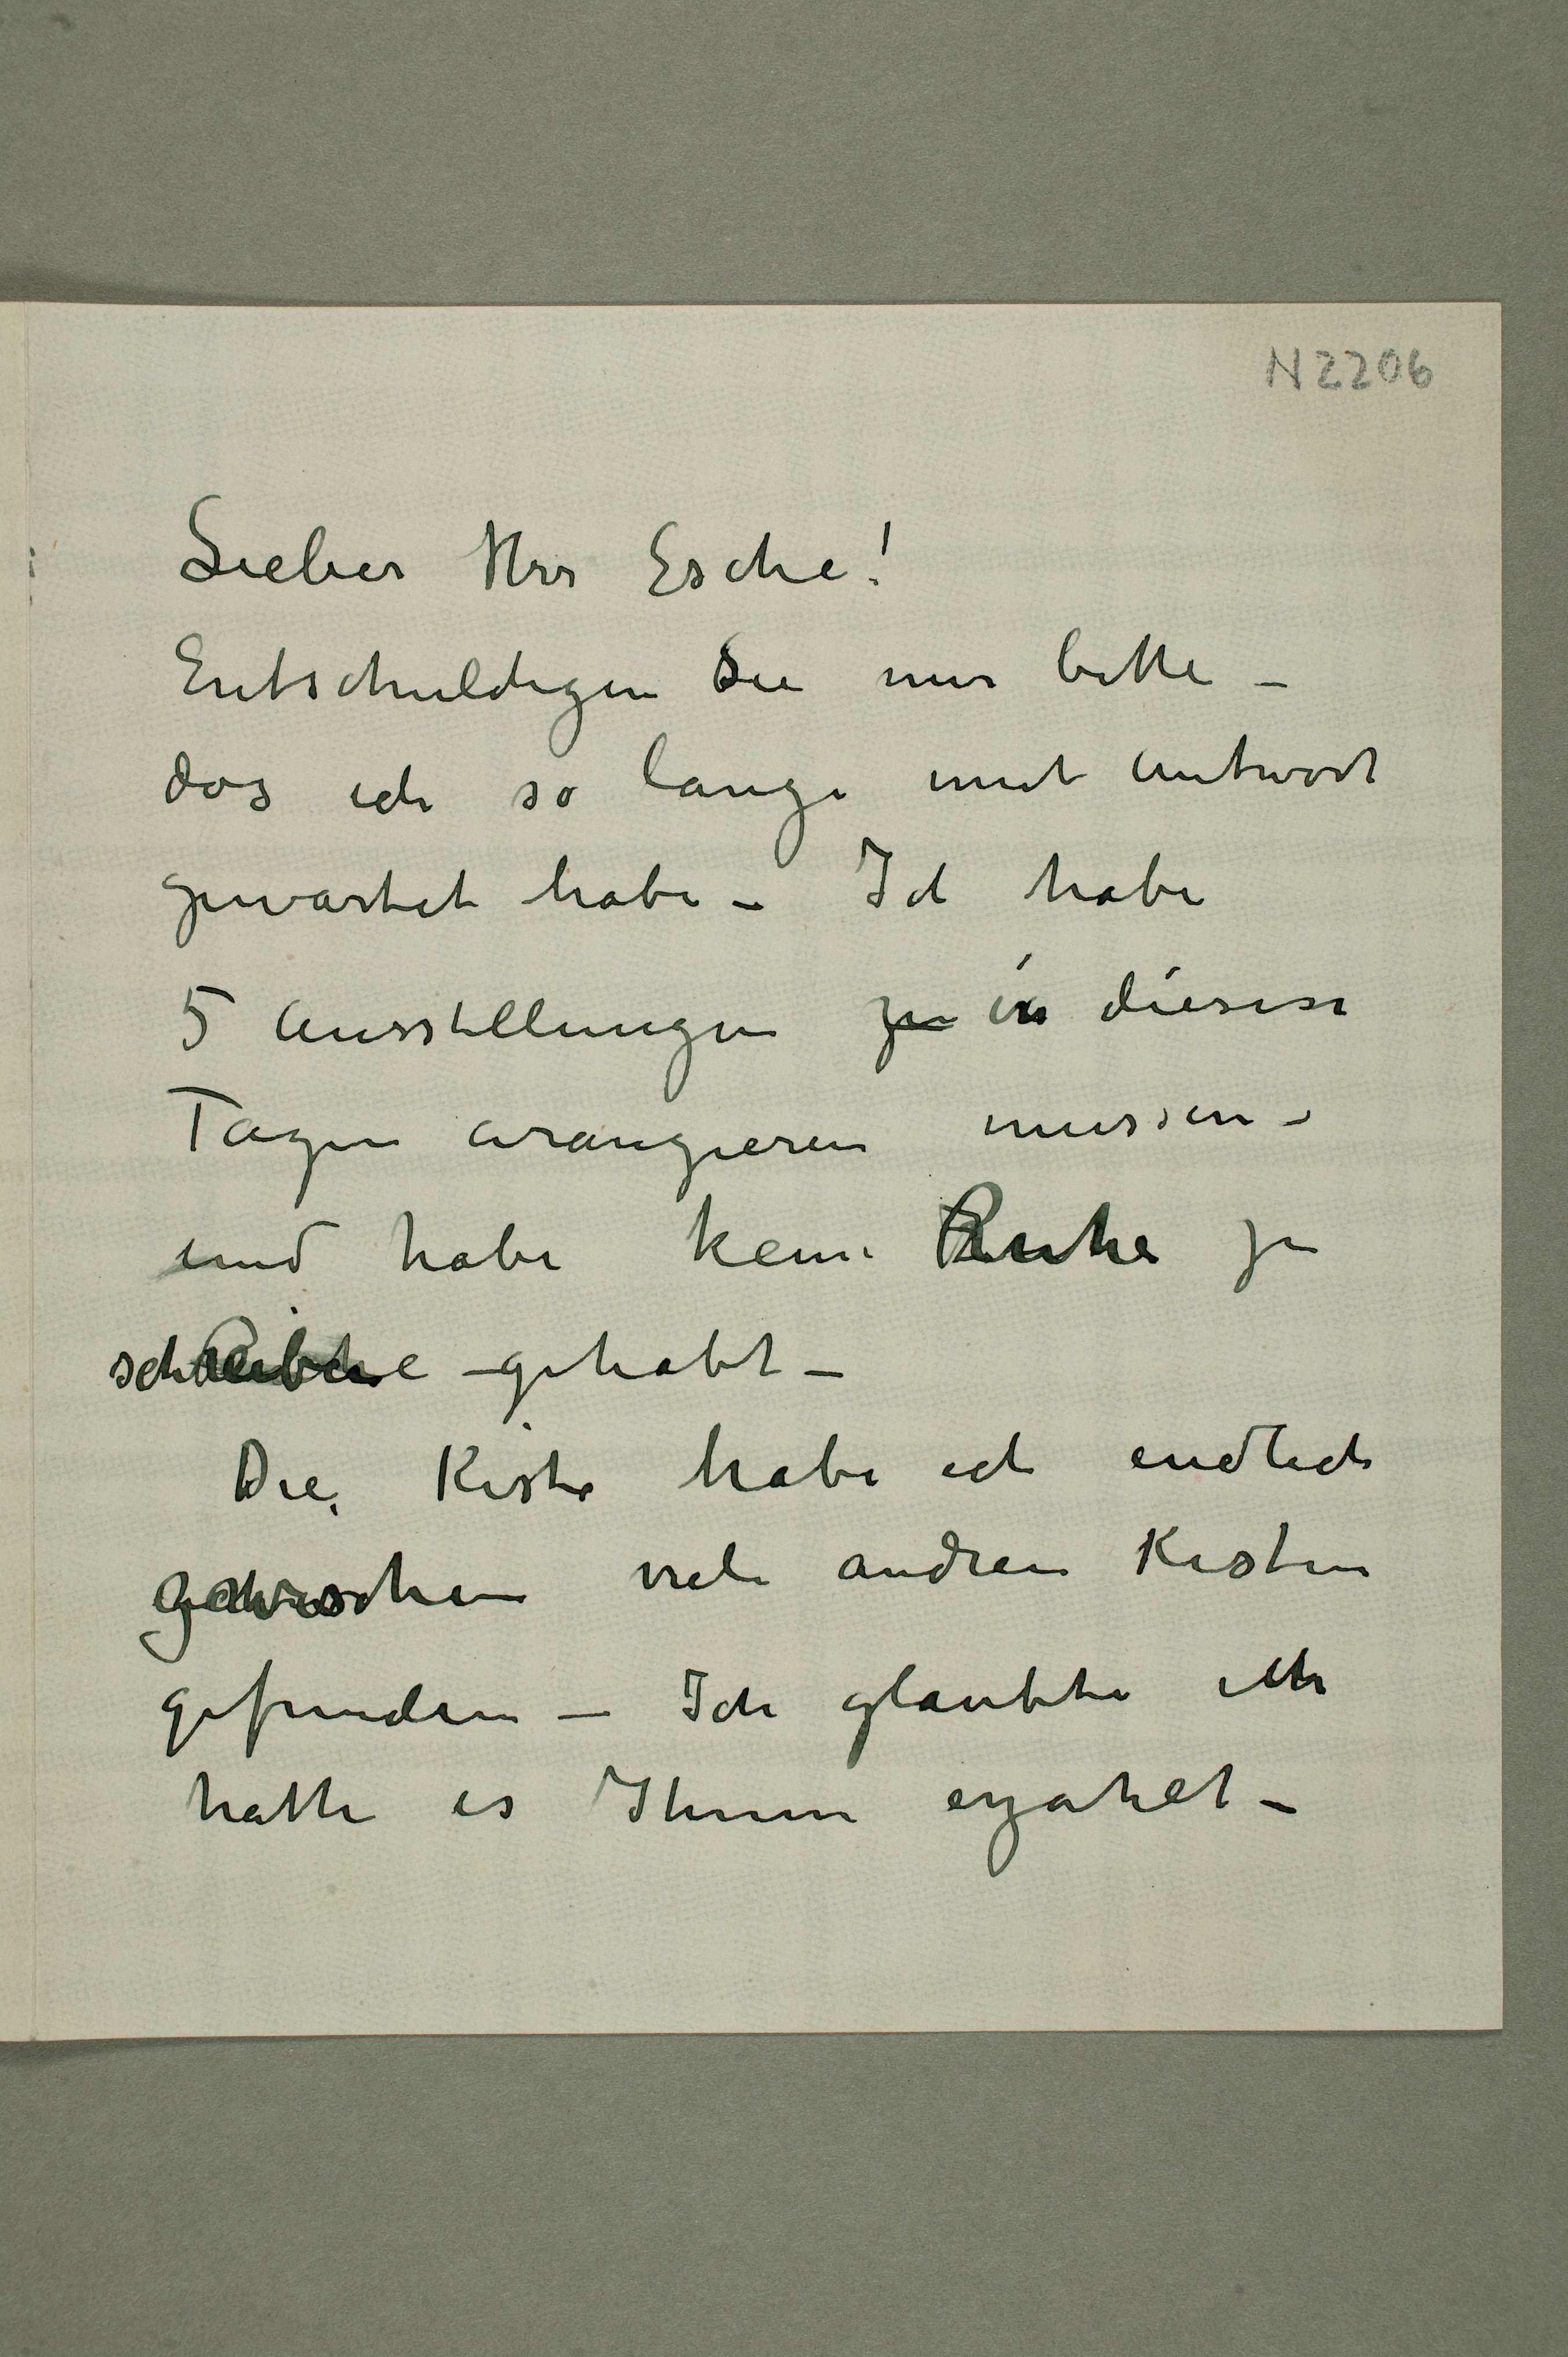 N 2206
Lieber Herr Esche!
Entschuldigen Sie mir bitte –
das ich so lange mit Antwort
gewartet habe – Ich habe
5 Ausstellungen zu in diesen
Tagen arangieren mussen –
und habe keine Ruhe zu
schreiben gehabt –
Die Kiste habe ich endlich
zwischen viele andren Kisten
gefunden – Ich glaubte ich
hatte es Ihnen erzahlt –